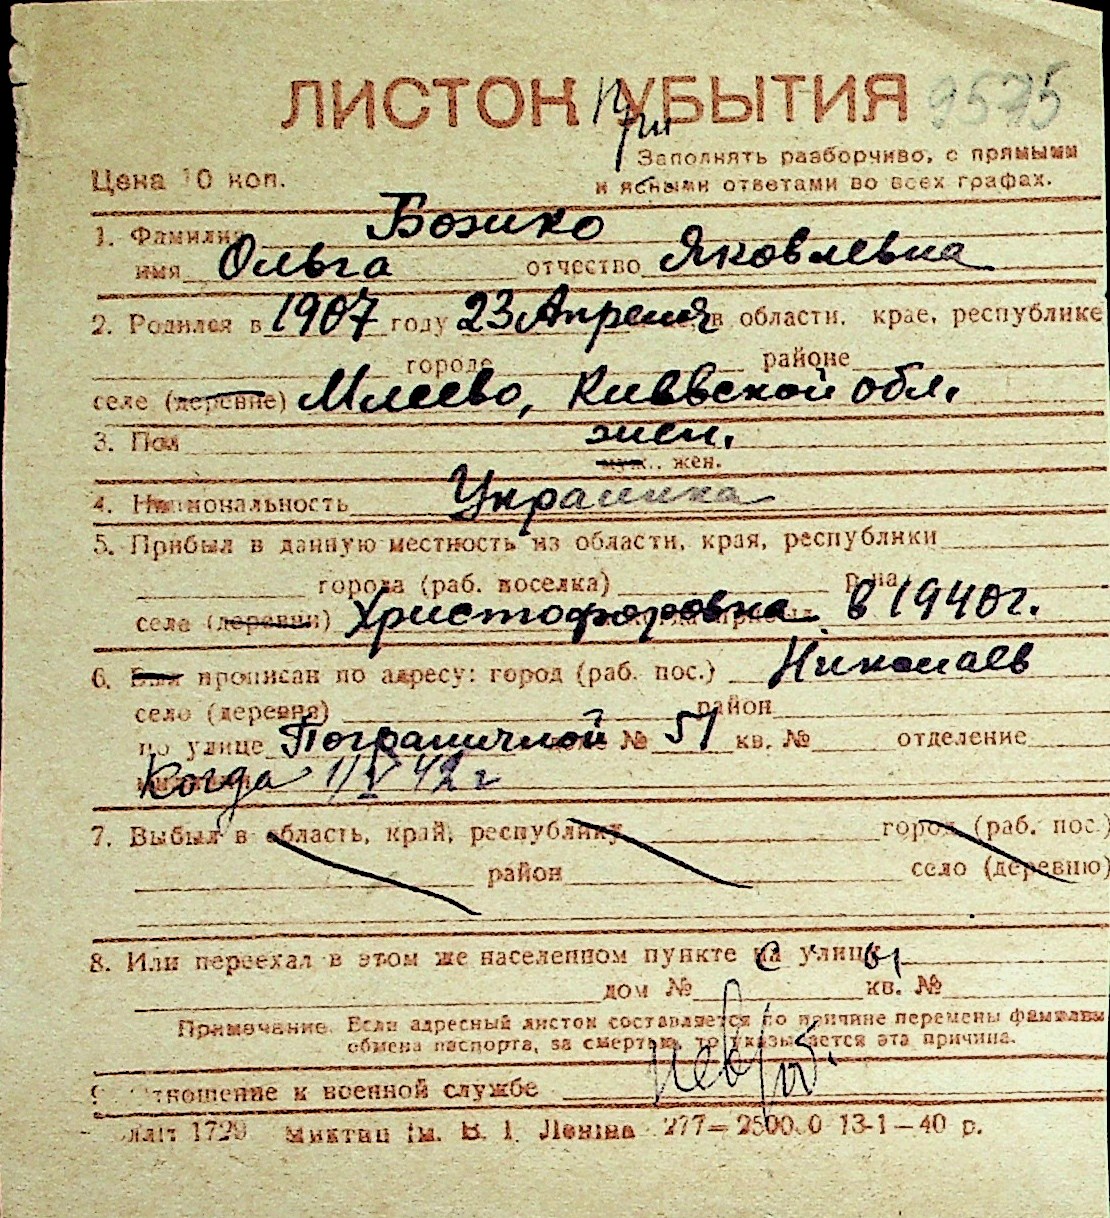 ЛИСТОК УБЫТИЯ 9575
При
Заполнять разборчиво, с прямыми
Цена 10 коп. и ясными ответами во всех графах.
1. Фамилия Божко
имя Ольга отчество Яковлевна
2. Родился в 1907 году 23 Апреля в области, крае, республике
городе районе
селе (деревне) Млеево, Киевской обл.
3. Пол жен.
муж., жен.
4. Национальность Украинка
5. Прибыл в данную местность из области, края, республики
города (раб. поселка) р-на
села (деревни) Христофоровка в 1940 г.
6. Был прописан по адресу: город (раб. пос.) Николаев
село (деревня) район
по улице Пограничной № 51 кв. № отделение
Когда 1/V 42 г
7. Выбыл в область, край, республику город (раб. пос.)
район село (деревню)
8. Или переехал в этом же населенном пункте на улицу
с ы
дом № кв. №
Примечание. Если адресный листок составляется по причине перемены фамилии,
обмена паспорта, за смертью, то указывается эта причина.
9. Отношение к военной службе
1729 Миктип ім. В. І. Леніна 277— 13-1—40 р.